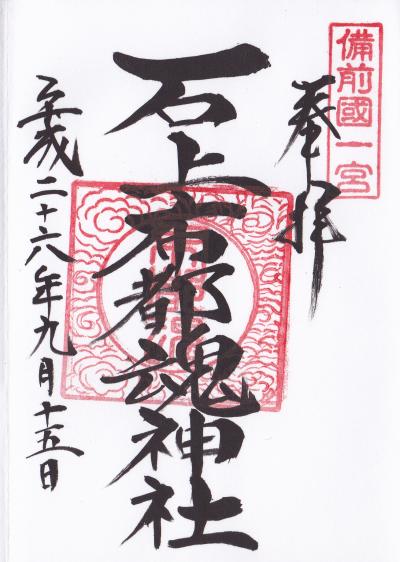 備前國一宮
奉拝
石上布都魂神社
平成二十六年九月十五日